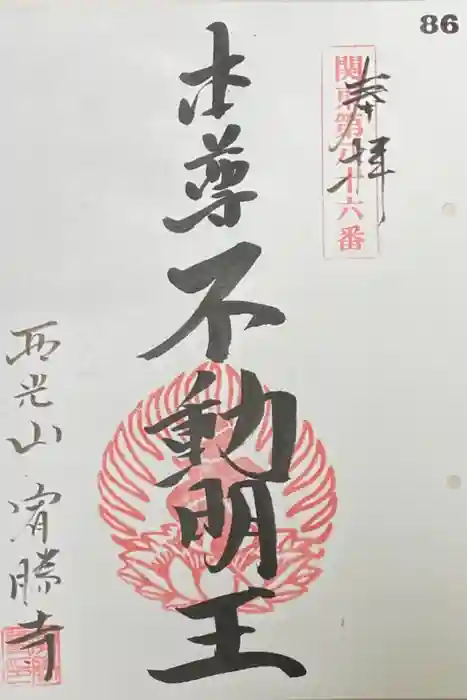 86
奉拝
関東第八十六番
本尊不動明王
西光山
宥勝寺